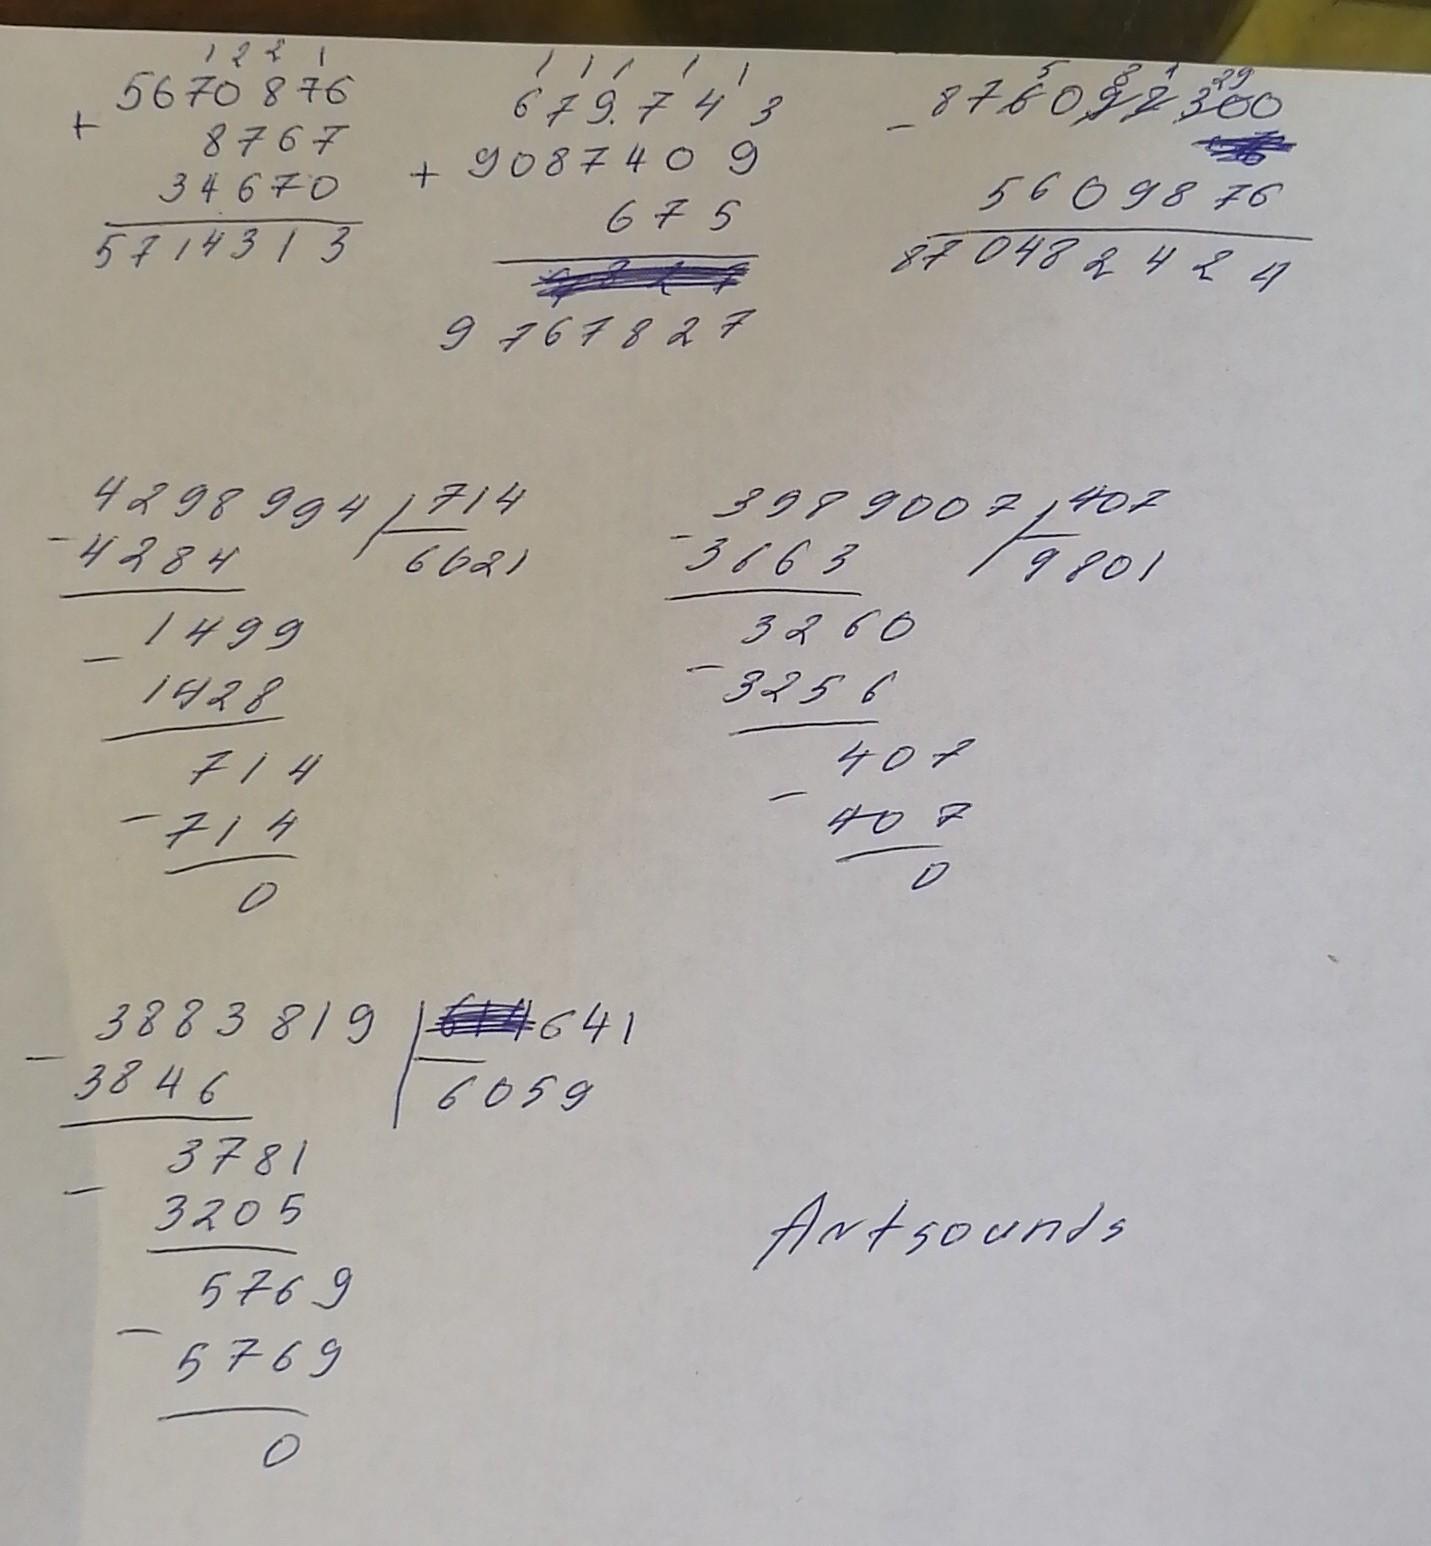 1 2 2 1
5670876
+ 8767
34670
5714313
1 1 1 1 1
679.743
+ 9087409
675
9767827
5 8 1 29
- 876092300
5609876
870482424
4298994 | 714
- 4284 6021
1499
- 1428
714
- 714
0
3989007 | 407
- 3663 9801
3260
- 3256
407
- 407
0
3883819 | 641
- 3846 6059
3781
- 3205
5769
- 5769
0
Artsounds